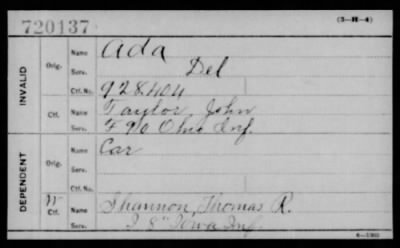 720137
(3-H-4)
INVALID
Orig.
Name Ada
Serv. Del
Ctf. No. 928404
Ctf.
Name Taylor, John
Serv. F 90 Ohio Inf.
DEPENDENT
Orig.
Name Car
Serv.
W
Ctf.
Name Shannon, Thomas R.
Serv. I 8" Iowa Inf.